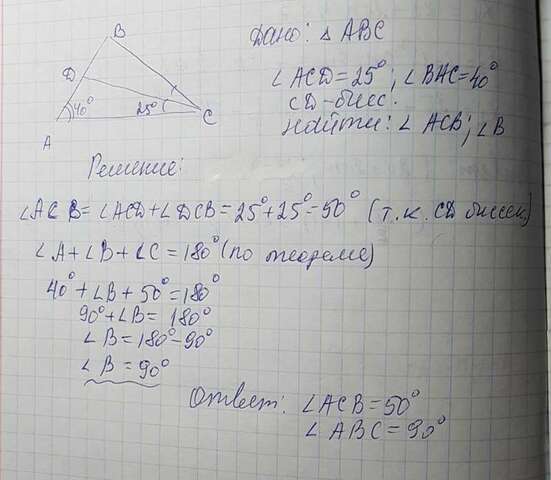 B
D
40°
25°
A
C
Дано: △ ABC
∠ ACD = 25°; ∠ BAC = 40°
CD - бисс.
Найти: ∠ ACB; ∠ B
Решение:
∠ ACB = ∠ ACD + ∠ DCB = 25° + 25° = 50° (т.к. CD биссек)
∠ A + ∠ B + ∠ C = 180° (по теореме)
40° + ∠ B + 50° = 180°
90° + ∠ B = 180°
∠ B = 180° - 90°
∠ B = 90°
Ответ: ∠ ACB = 50°
∠ ABC = 90°